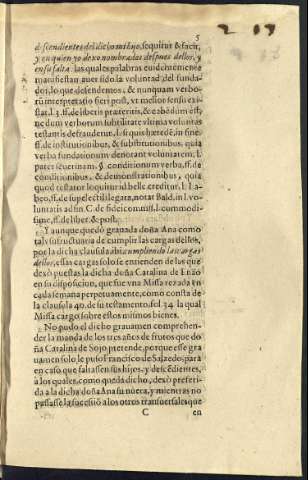 5
descendientes del dicho mi hijo, sequitur & facit,
y en quien yo dexo nombradas despues dellos, y
en su falta, las quales palabras euidentemente
manifiestan auer sido la voluntad del funda-
dor, lo que defendemos, & nunquam verbo-
rũ interpretatio fieri post, vt melior sensus exi-
stat, l. 3. ff. de liberis præteritis, & eâ
ne dem verborum subtilitate vltima voluntas
testantis defraudetur, l. si quis hæredẽ, in fine,
ff. de institutionibus, & substitutionibus, quia
verba fundationum denotant voluntatem, l.
pater seuerinam. §. conditionum verba, ff. de
conditionibus, & demonstrationibus, quia
quod testator loquitur id velle creditur, l. La-
beo, ff. de supellectili legata, notat Bald. in l. vo-
luntatis ad fin C. de fideicommiss. l. commodis-
sime, ff. de liber. & post.
Y aunque quedò granada doña Ana como
tal vsufructuaria de cumplir las cargas dellos,
por la dicha clausula, ibi: cumpliendo las cargas
dellos, essas cargas solo se entienden de los que
dexò puestas la dicha doña Catalina de Enao
en su disposicion, que fue vna Missa rezada en
cada semana perpetuamente, como consta de
la clausula 40. de su testamento, fol. 34. la qual
Missa cargò sobre estos mismos bienes.
No pudo el dicho grauamen comprehen-
der la manda de los tres años de frutos que do
ña Catalina de Sojo pretende, porque esse gra
uamen solo le puso Francisco de Salzedo, para
en caso que faltassen sus hijos, y descẽdientes,
a los quales, como queda dicho, dexò preferi-
da a la dicha doña Ana su nuera, y mientras no
passasse la sucessiõ a los otros transuersales que
C en